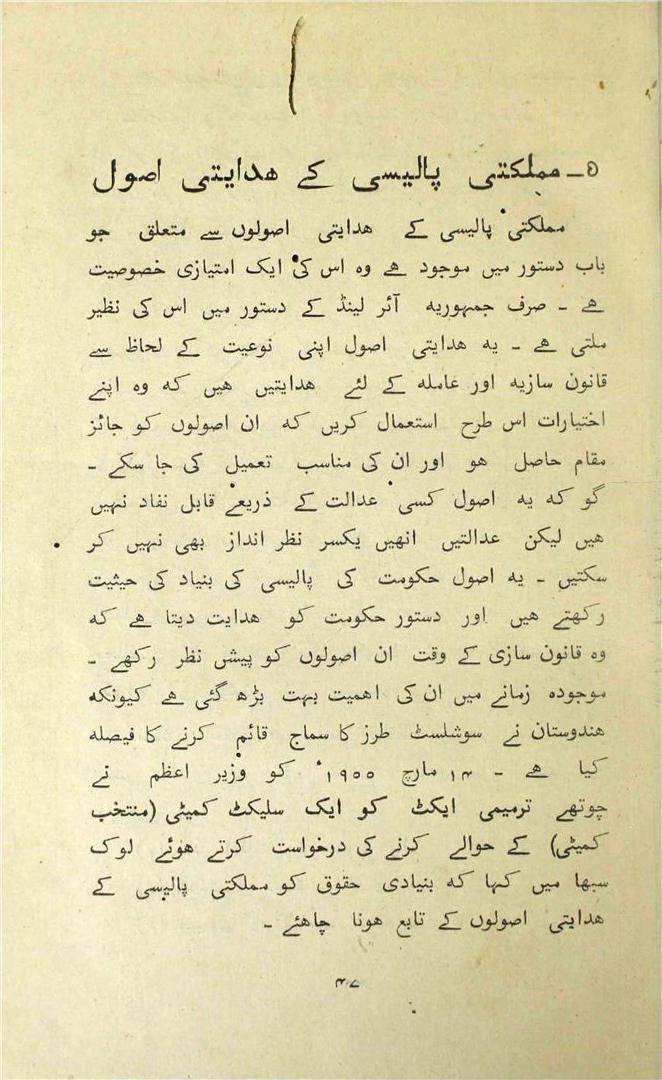 ۵ـ مملکتی پالیسی کے ھدایتی اصول
مملکتی پالیسی کے ھدایتی اصولوں سے متعلق جو
باب دستور میں موجود ھے وہ اس کی ایک امتیازی خصوصیت
ھے ۔ صرف جمہوریہ آئر لینڈ کے دستور میں اس کی نظیر
ملتی ھے ۔ یہ ھدایتی اصول اپنی نوعیت کے لحاظ سے
قانون سازیہ اور عاملہ کے لئے ھدایتیں ھیں کہ وہ اپنے
اختیارات اس طرح استعمال کریں کہ ان اصولوں کو جائز
مقام حاصل ھو اور ان کی مناسب تعمیل کی جا سکے ۔
گو کہ یہ اصول کسی عدالت کے ذریعے قابل نفاد نہیں
ھیں لیکن عدالتیں انھیں یکسر نظر انداز بھی نہیں کر
سکتیں ۔ یہ اصول حکومت کی پالیسی کی بنیاد کی حیثیت
رکھتے ھیں اور دستور حکومت کو ھدایت دیتا ھے کہ
وہ قانون سازی کے وقت ان اصولوں کو پیش نظر رکھے ۔
موجودہ زمانے میں ان کی اھمیت بہت بڑھ گئی ھے کیونکہ
ھندوستان نے سوشلسٹ طرز کا سماج قائم کرنے کا فیصلہ
کیا ھے ۔ ۱۴ مارچ ۱۹۵۵ء کو وزیر اعظم نے
چوتھے ترمیمی ایکٹ کو ایک سلیکٹ کمیٹی (منتخب
کمیٹی) کے حوالے کرنے کی درخواست کرتے ھوئے لوک
سبھا میں کہا کہ بنیادی حقوق کو مملکتی پالیسی کے
ھدایتی اصولوں کے تابع ھونا چاھئے ۔
۴۷